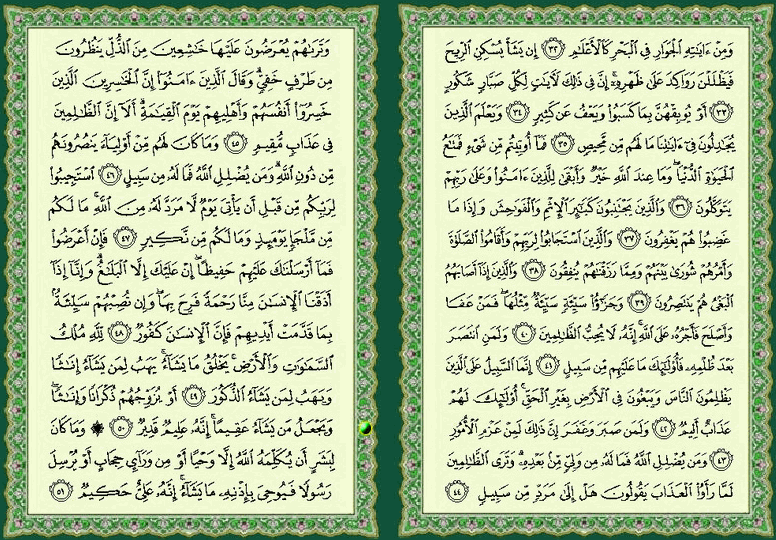 وَمِنْ ءَايَٰتِهِ ٱلْجَوَارِ فِى ٱلْبَحْرِ كَٱلْأَعْلَٰمِ ٣٢ إِن يَشَأْ يُسْكِنِ ٱلرِّيحَ
فَيَظْلَلْنَ رَوَاكِدَ عَلَىٰ ظَهْرِهِۦٓ إِنَّ فِى ذَٰلِكَ لَءَايَٰتٍ لِّكُلِّ صَبَّارٍ شَكُورٍ
٣٣ أَوْ يُوبِقْهُنَّ بِمَا كَسَبُوا۟ وَيَعْفُ عَن كَثِيرٍ ٣٤ وَيَعْلَمَ ٱلَّذِينَ
يُجَٰدِلُونَ فِىٓ ءَايَٰتِنَا مَا لَهُم مِّن مَّحِيصٍ ٣٥ فَمَآ أُوتِيتُم مِّن شَىْءٍ فَمَتَٰعُ
ٱلْحَيَوٰةِ ٱلدُّنْيَا ۖ وَمَا عِندَ ٱللَّهِ خَيْرٌ وَأَبْقَىٰ لِلَّذِينَ ءَامَنُوا۟ وَعَلَىٰ رَبِّهِمْ
يَتَوَكَّلُونَ ٣٦ وَٱلَّذِينَ يَجْتَنِبُونَ كَبَٰٓئِرَ ٱلْإِثْمِ وَٱلْفَوَٰحِشَ وَإِذَا مَا
غَضِبُوا۟ هُمْ يَغْفِرُونَ ٣٧ وَٱلَّذِينَ ٱسْتَجَابُوا۟ لِرَبِّهِمْ وَأَقَامُوا۟ ٱلصَّلَوٰةَ
وَأَمْرُهُمْ شُورَىٰ بَيْنَهُمْ وَمِمَّا رَزَقْنَٰهُمْ يُنفِقُونَ ٣٨ وَٱلَّذِينَ إِذَآ أَصَابَهُمُ
ٱلْبَغْىُ هُمْ يَنتَصِرُونَ ٣٩ وَجَزَٰٓؤُا۟ سَيِّئَةٍ سَيِّئَةٌ مِّثْلُهَا ۖ فَمَنْ عَفَا
وَأَصْلَحَ فَأَجْرُهُۥ عَلَى ٱللَّهِ ۚ إِنَّهُۥ لَا يُحِبُّ ٱلظَّٰلِمِينَ ٤٠ وَلَمَنِ ٱنتَصَرَ
بَعْدَ ظُلْمِهِۦ فَأُو۟لَٰٓئِكَ مَا عَلَيْهِم مِّن سَبِيلٍ ٤١ إِنَّمَا ٱلسَّبِيلُ عَلَى ٱلَّذِينَ
يَظْلِمُونَ ٱلنَّاسَ وَيَبْغُونَ فِى ٱلْأَرْضِ بِغَيْرِ ٱلْحَقِّ ۚ أُو۟لَٰٓئِكَ لَهُمْ
عَذَابٌ أَلِيمٌ ٤٢ وَلَمَن صَبَرَ وَغَفَرَ إِنَّ ذَٰلِكَ لَمِنْ عَزْمِ ٱلْأُمُورِ
٤٣ وَمَن يُضْلِلِ ٱللَّهُ فَمَا لَهُۥ مِن وَلِىٍّ مِّنۢ بَعْدِهِۦ ۗ وَتَرَى ٱلظَّٰلِمِينَ
لَمَّا رَأَوُا۟ ٱلْعَذَابَ يَقُولُونَ هَلْ إِلَىٰ مَرَدٍّ مِّن سَبِيلٍ ٤٤
وَتَرَىٰهُمْ يُعْرَضُونَ عَلَيْهَا خَٰشِعِينَ مِنَ ٱلذُّلِّ يَنظُرُونَ
مِن طَرْفٍ خَفِىٍّ ۗ وَقَالَ ٱلَّذِينَ ءَامَنُوٓا۟ إِنَّ ٱلْخَٰسِرِينَ ٱلَّذِينَ
خَسِرُوٓا۟ أَنفُسَهُمْ وَأَهْلِيهِمْ يَوْمَ ٱلْقِيَٰمَةِ ۗ أَلَآ إِنَّ ٱلظَّٰلِمِينَ
فِى عَذَابٍ مُّقِيمٍ ٤٥ وَمَا كَانَ لَهُم مِّنْ أَوْلِيَآءَ يَنصُرُونَهُم
مِّن دُونِ ٱللَّهِ ۗ وَمَن يُضْلِلِ ٱللَّهُ فَمَا لَهُۥ مِن سَبِيلٍ ٤٦ ٱسْتَجِيبُوا۟
لِرَبِّكُم مِّن قَبْلِ أَن يَأْتِىَ يَوْمٌ لَّا مَرَدَّ لَهُۥ مِنَ ٱللَّهِ ۚ مَا لَكُم
مِّن مَّلْجَإٍ يَوْمَئِذٍ وَمَا لَكُم مِّن نَّكِيرٍ ٤٧ فَإِنْ أَعْرَضُوا۟
فَمَآ أَرْسَلْنَٰكَ عَلَيْهِمْ حَفِيظًا ۖ إِنْ عَلَيْكَ إِلَّا ٱلْبَلَٰغُ ۗ وَإِنَّآ إِذَآ
أَذَقْنَا ٱلْإِنسَٰنَ مِنَّا رَحْمَةً فَرِحَ بِهَا ۖ وَإِن تُصِبْهُمْ سَيِّئَةٌۢ
بِمَا قَدَّمَتْ أَيْدِيهِمْ فَإِنَّ ٱلْإِنسَٰنَ كَفُورٌ ٤٨ لِّلَّهِ مُلْكُ
ٱلسَّمَٰوَٰتِ وَٱلْأَرْضِ ۚ يَخْلُقُ مَا يَشَآءُ ۚ يَهَبُ لِمَن يَشَآءُ إِنَٰثًا
وَيَهَبُ لِمَن يَشَآءُ ٱلذُّكُورَ ٤٩ أَوْ يُزَوِّجُهُمْ ذُكْرَانًا وَإِنَٰثًا ۖ
وَيَجْعَلُ مَن يَشَآءُ عَقِيمًا ۚ إِنَّهُۥ عَلِيمٌ قَدِيرٌ ٥٠ ۞ وَمَا كَانَ
لِبَشَرٍ أَن يُكَلِّمَهُ ٱللَّهُ إِلَّا وَحْيًا أَوْ مِن وَرَآئِ حِجَابٍ أَوْ يُرْسِلَ
رَسُولًا فَيُوحِىَ بِإِذْنِهِۦ مَا يَشَآءُ ۚ إِنَّهُۥ عَلِىٌّ حَكِيمٌ ٥١